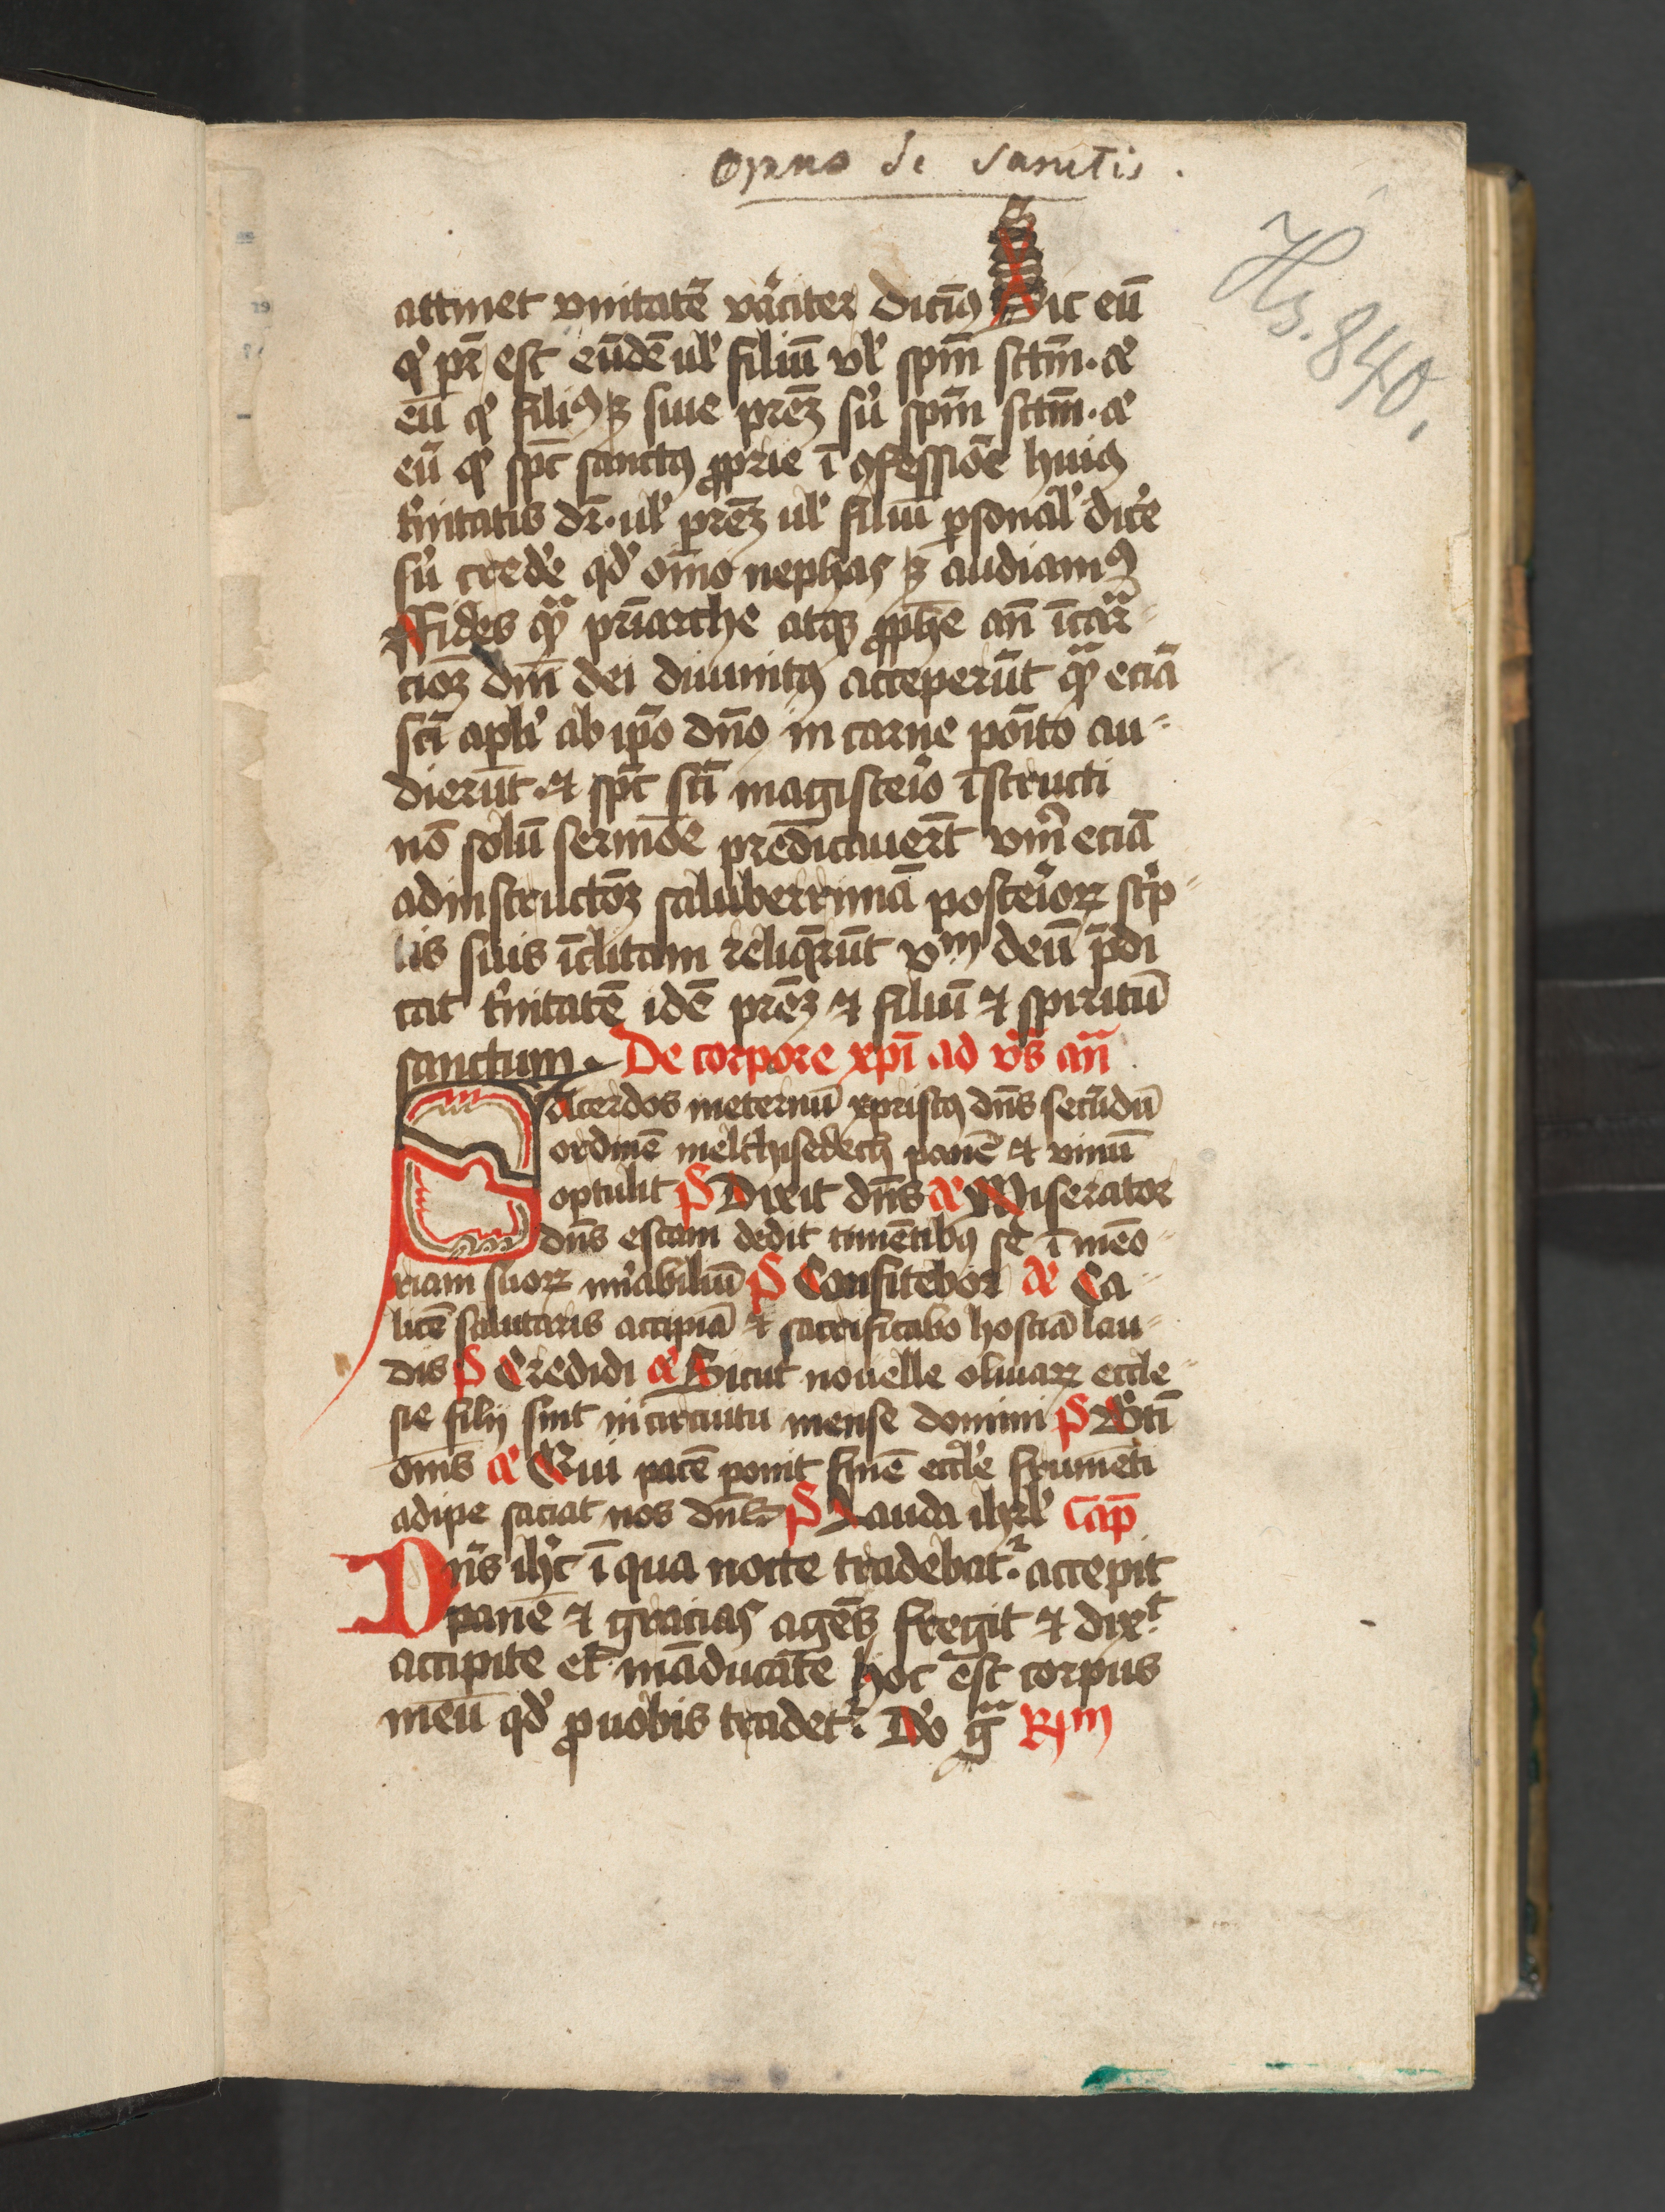 Opus de Sanctis.
Hs. 840.
attinet vnitatē v̄aciter dicim⁹ Sic eū
qͥ pr̄ est eūdē ulͥ filiū vlͥ spm̄ sctm̄. ⁊
eū qͥ filiꝰ ē siue prēꝫ suͥ spm̄ sctm̄. ⁊
eū qͥ spc̄ sanctꝰ ꝓprie ī ꝯfessiōe huiꝰ
tͥnitatis dr̄. ulͥ prēꝫ ulͥ filiū ꝑsonalͥ dicͤe
suͥ credͤe qdͥ oīno nephas ē audiamꝰ
Fides qᷓ pr̄iarche atqꝫ ꝓphē an̄ īcarᷓ
cioꝫ dn̄i dei diuinitꝰ acceperūt qᷓ eciā
scī apli ab ip̄o dn̄o in carne poīto au-
dierūt. ⁊ spc̄ scī magisterͥo īstructi
nō solū sermōe predicauerūt vm̄ eciā
ad instructōꝫ saluberrimā posterͥoꝝ scͥp
tis suis īclitam reliqͤrūt vnͫ deū p̄di
cat tͥnitatē idē prēꝫ ⁊ filiū ⁊ spiritū
sanctum. De corpore xpī ad vͥs an̄
Sacerdos in eternū xpristꝰ dn̄s secūdū
ordinē melchisedech panē ⁊ vinū
optulit P̄s Dixit dn̄s a͞ Miserator
dn̄s escam dedit timētibꝰ se ī memo-
riam suoꝝ mͥabiliū P̄s Confitebor a͞ Ca-
licē salutaris accipiā ⁊ sacrificabo hostiā lau-
dis P̄s Credidi a͞ Sicut nouelle oliuaꝝ eccle-
sie filij sint in circuitu mense domini P̄s Bt̄i
om̄s a͞ Qui pacē ponit finē ecclͥe frumēti
adipe saciat nos dn̄s P̄s Lauda ihrlͥ Cap̄
Dn̄s ihc̄ ī qua nocte tradebatͬ. accepit
panē ⁊ gracias agēs fregit ⁊ dixͭ
accipite et māducate hoc est corpus
meū qdͥ ꝓ uobis tradetͬ. Do gᷓ Rͫ